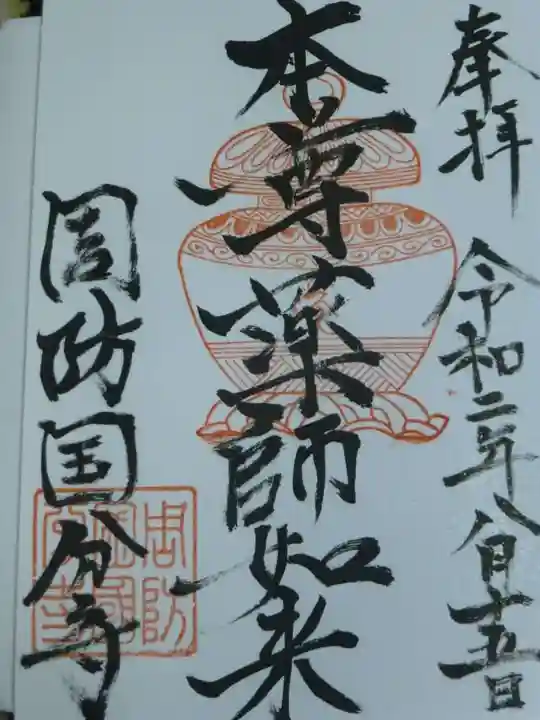 奉拝 令和二年八月十五日
本尊薬師如来
周防国分寺
周防国分寺